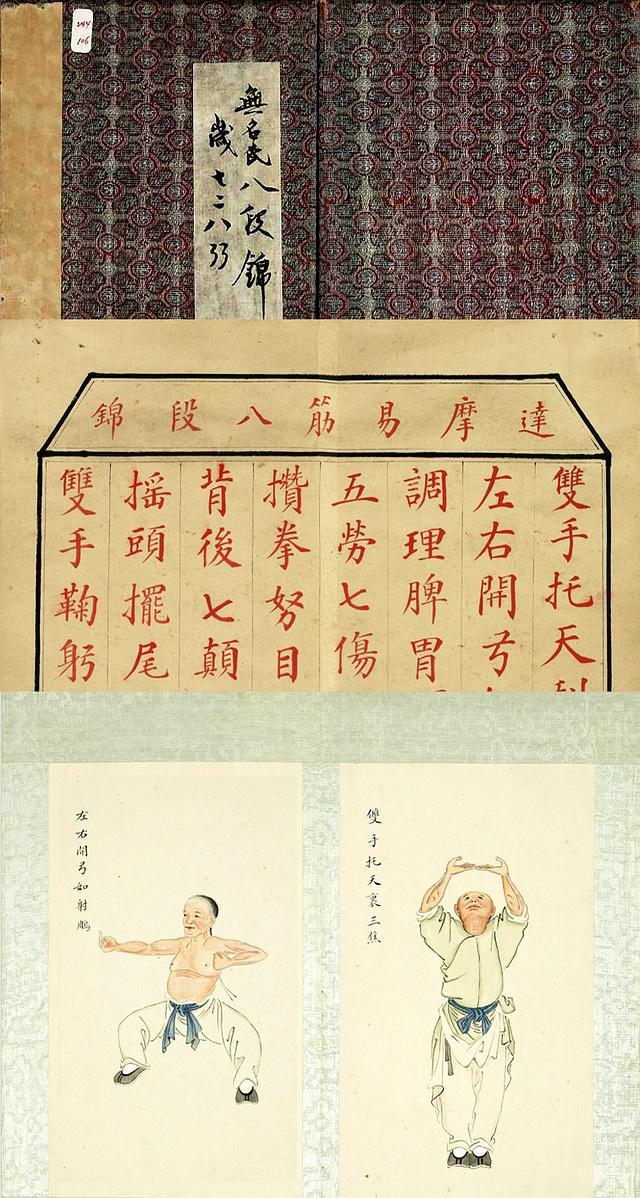 無名氏八段錦
歲七二八
達摩易筋八段錦
雙手托天
左右開弓
調理脾胃
五勞七傷
攢拳努目
背後七顛
搖頭擺尾
雙手鞠躬
雙手托天裏三焦
左右開弓如射鵰